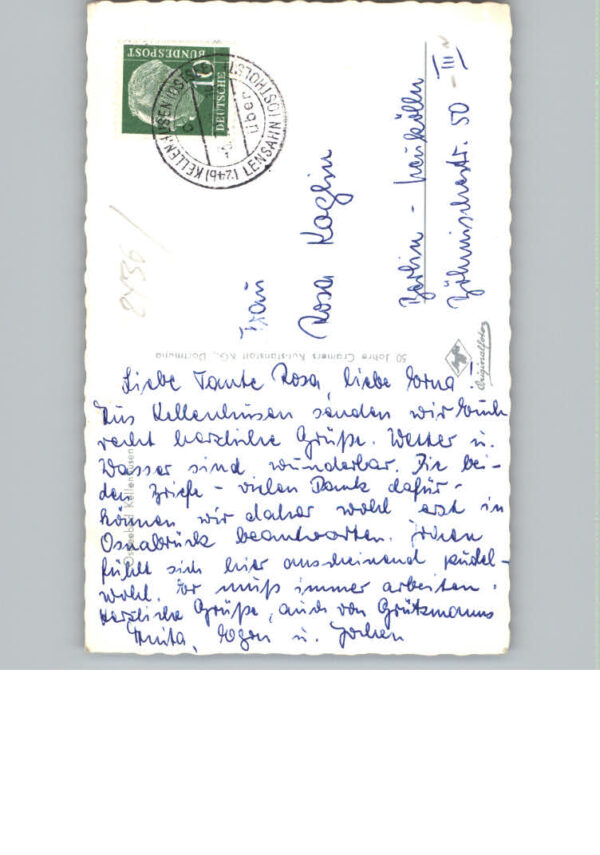 Liebe Tante Rosa, liebe Erna!
Aus Kellenhusen senden wir Euch
recht herzliche Grüße. Wetter u.
Wasser sind wunderbar. Die bei-
den Briefe - vielen Dank dafür -
können wir daher wohl erst in
Osnabrück beantworten. Jochen
fühlt sich hier anscheinend pudel-
wohl. Er muß immer arbeiten.
Herzliche Grüße, auch von Grützmanns
Anita, Egon u. Jochen
Frau
Rosa Koglin
Berlin - Neukölln
Böhmischestr. 50 - III
DEUTSCHE
BUNDESPOST
10
(24b) KELLENHUSEN (OSTSEE)
über
LENSAHN (OSTHOLST)
50 Jahre Cramers Kunstanstalt KG., Dortmund
Originalfoto
Ostseebad Kellenhusen
2436/